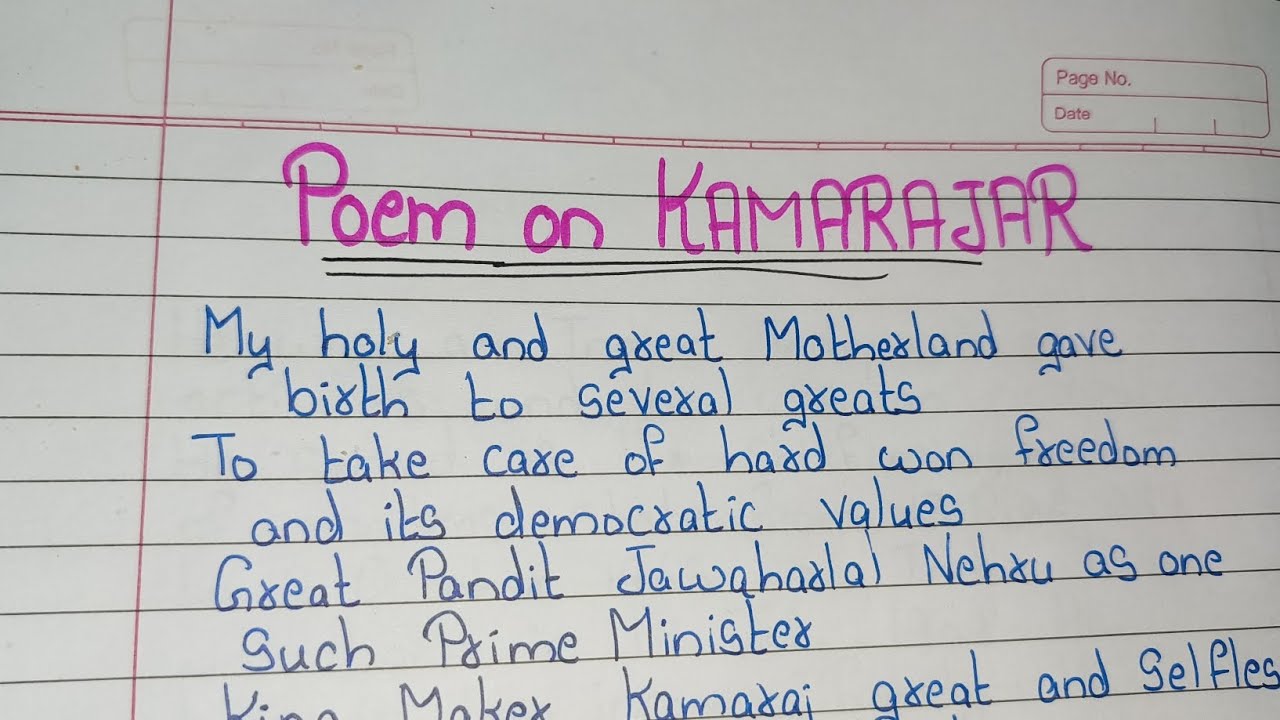 Page No.
Date
Poem on KAMARAJAR
My holy and great Motherland gave
birth to several greats
To take care of hard won freedom
and its democratic values
Great Pandit Jawaharlal Nehru as one
such Prime Minister
King Maker Kamaraj great and Selfles